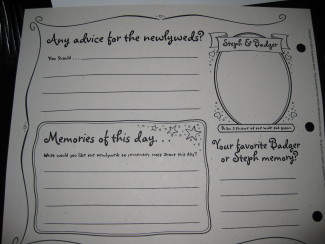 Any advice for the newlyweds?
You Should
Steph & Badger
Draw a picture of our bride and groom
Memories of this day. . .
What would you like our newlyweds to remember most about this day?
Your favorite Badger
or Steph memory?